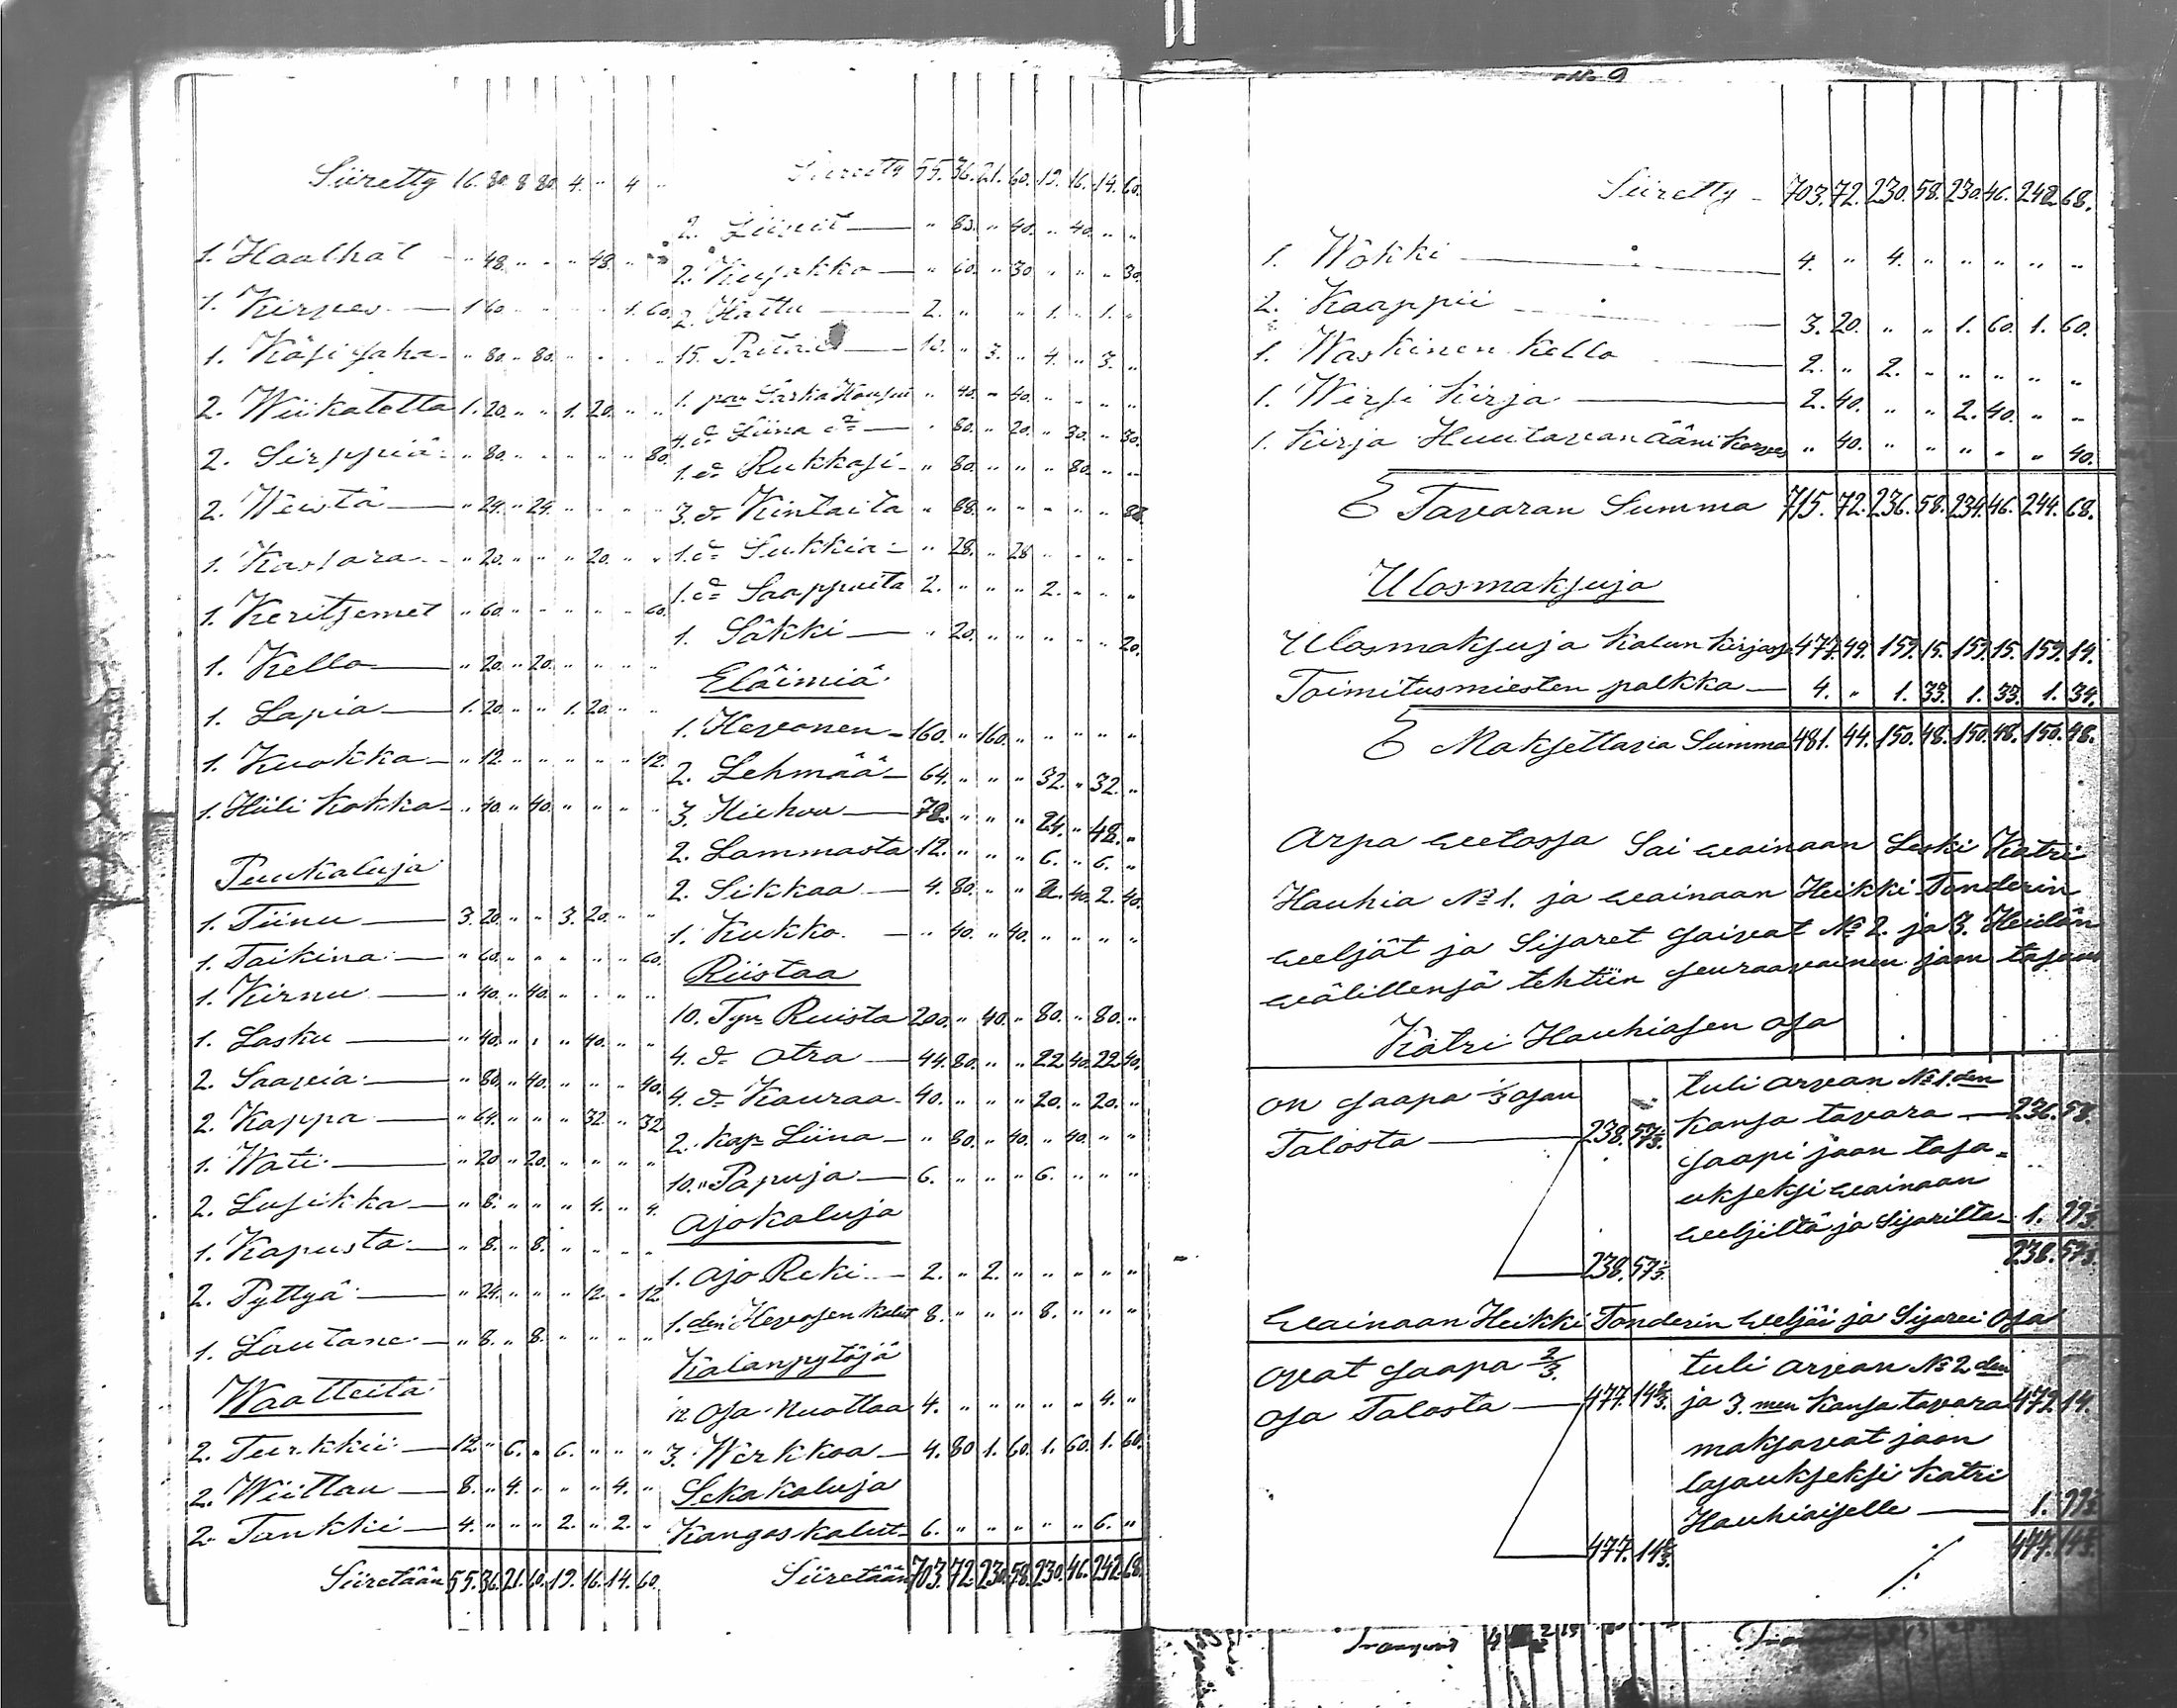 Siiretty 16. 80. 8 80. 4. " 4 "
1. Haalhat " 48. " " " 48. " "
1. Kirves 1 60 " " " " 1. 60.
1. Käsi saha " 80. " 80. " " " "
2. Wiikatetta 1. 20. " " 1. 20. " "
2. Sirppiä " 80. " " " " " 80.
2. Weistä " 24. " 24. " " " "
1. Kastara " 20. " " " 20. " "
1. Keritsemet " 60. " " " " " 60.
1. Kello " 20. " 20. " " " "
1. Lapia 1. 20. " " 1. 20. " "
1. Kuokka " 12. " " " " " 12.
1. Hiili Kokka " 40. " 40. " " " "
Puukaluja
1. Tiinu 3. 20. " " 3. 20. " "
1. Taikina " 60. " " " " " 60.
1. Kirnu " 40. " 40. " " " "
1. Lasku " 40. " " " 40. " "
2. Saavia " 80. " 40. " " " 40.
2. Kappa " 64. " " " 32. " 32.
1. Wati " 20 " 20. " " " "
2. Lusikka " 8. " " " 4. " 4.
1. Kapusta " 8. " 8. " " " "
2. Pyttyä " 24. " " " 12. " 12.
1. Lautane " 8. " 8. " " " "
Waatteita
2. Turkkii 12. " 6. " 6. " " "
2. Wiittau 8. " 4. " " " 4. "
2. Tankkii 4. " " " 2. " 2. "
Siiretään 55. 36. 21. 60. 19. 16. 14. 60.
Siiretty 55. 36. 21. 60. 19. 16. 14. 60.
2. Liinit " 80. " 40. " 40. " "
2. " 60. " 30 " " " 30.
2. Hattu 2. " " 1. " 1. "
15. Paitaa 10. " 3. " 4. " 3. "
1. par Sarka Housui " 40. " 40. " " " "
4. d:o Liina d:o " 80. " 20. " 30. " 30.
1. d:o Rukkasi " 80. " " " 80. " "
3. d:o Kintaita " 88. " " " " " 88.
1. d:o Sukkia " 28. " 28 " " " "
1. d:o Saappaita 2. " " " 2. " " "
1. Säkki " 20. " " " " " 20.
Eläimiä
1. Hevonen 160. " 160. " " " " "
2. Lehmää 64. " " " 32. " 32. "
3. Hiehoa 72. " " " 24. " 48. "
2. Lammasta 12. " " " 6. " 6. "
2. Sikkaa 4. 80. " " 2. 40. 2. 40.
1. Kukko " 40. " 40. " " " "
Riistaa
10. Tyn Ruista 200. " 40. " 80. " 80. "
4. d:o Otra 44. 80. " " 22 40. 22 40.
4. d:o Kauraa 40. " " " 20. " 20. "
2. Kap Liina " 80. " 40. " 40. " "
10. " Papuja 6. " " " 6. " " "
Ajokaluja
1. Ajo Reki 2. " 2. " " " " "
1. den Hevosen Kalut 8. " " " 8. " " "
Kalanpytöjä
½ Osa Nuottaa 4. " " " " " 4. "
3. Werkkoa 4. 80 1. 60. 1. 60. 1. 60.
Sekakaluja
Kangas kalut 6. " " " " " 6. "
Siiretään 703. 72. 230. 58. 230. 46. 242. 68.
No 9
Siiretty 703. 72. 230. 58. 230. 46. 242. 68.
1. Wökki 4. " 4. " " " " "
2. Kaappii 3. 20. " " 1. 60. 1. 60.
1. Waskinen Kello 2. " 2. " " " " "
1. Wirsi Kirja 2. 40. " " 2. 40. " "
1. Kirja Huutavan ääni Korves " 40. " " " " " 40.
Tavaran Summa 715. 72. 236. 58. 234. 46. 244. 68.
Ulosmaksuja
Ulosmaksuja Kalun kirjassa 477. 49. 159. 15. 159. 15. 159. 19.
Toimitusmiesten palkka 4. " 1. 33. 1. 33. 1. 34.
Maksettavia Summa 481. 44. 150. 48. 150. 48. 150. 48.
Arpa weetossa Sai wainaan Leski Katri
Hauhia No 1. ja wainaan Heikki Tonderin
weljät ja Sisaret saivat No 2. ja 3. Heidän
wälillensä tehtiin seuraavainen jaon tasaus
Kätri Hauhiasen osa
on saapa ⅓ osan
Talosta 238. 57⅓.
238. 57⅓.
tuli arvan No 1. den
kansa tavara 236. 58.
saapi jaon tasa=
ukseksi wainaan
weljiltä ja Sisarilta 1. 99⅓
238. 57⅓.
Wainaan Heikki Tonderin weljäi ja Sisarei Osa
ovat saapa ⅔.
osa Talosta 477. 14⅔.
477. 14⅔.
tuli arvan No 2 den
ja 3. men kansa tavara 479. 14.
maksavat jaon
tasaukseksi Katri
Hauhiaiselle 1. 99⅓
477. 14⅔.